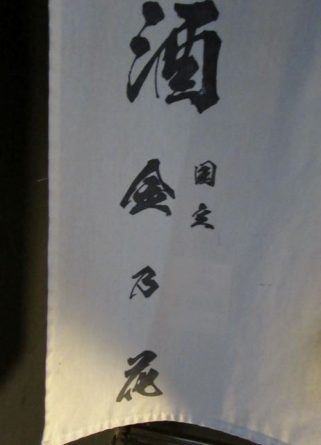 酒
国定
金乃花